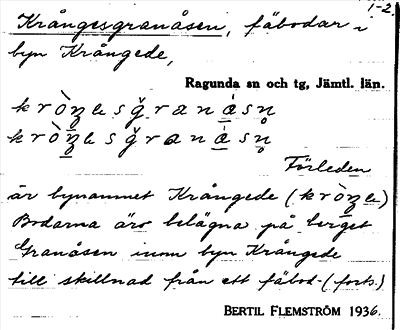 1-2.
Krångesgranåsen, fäbodar i
byn Krångede,
Ragunda sn och tg, Jämtl. län.
Förleden
är bynamnet Krångede (
Bodarna äro belägna på berget
Granåsen inom byn Krångede
till skillnad från ett fäbod- (forts.)
BERTIL FLEMSTRÖM 1936.